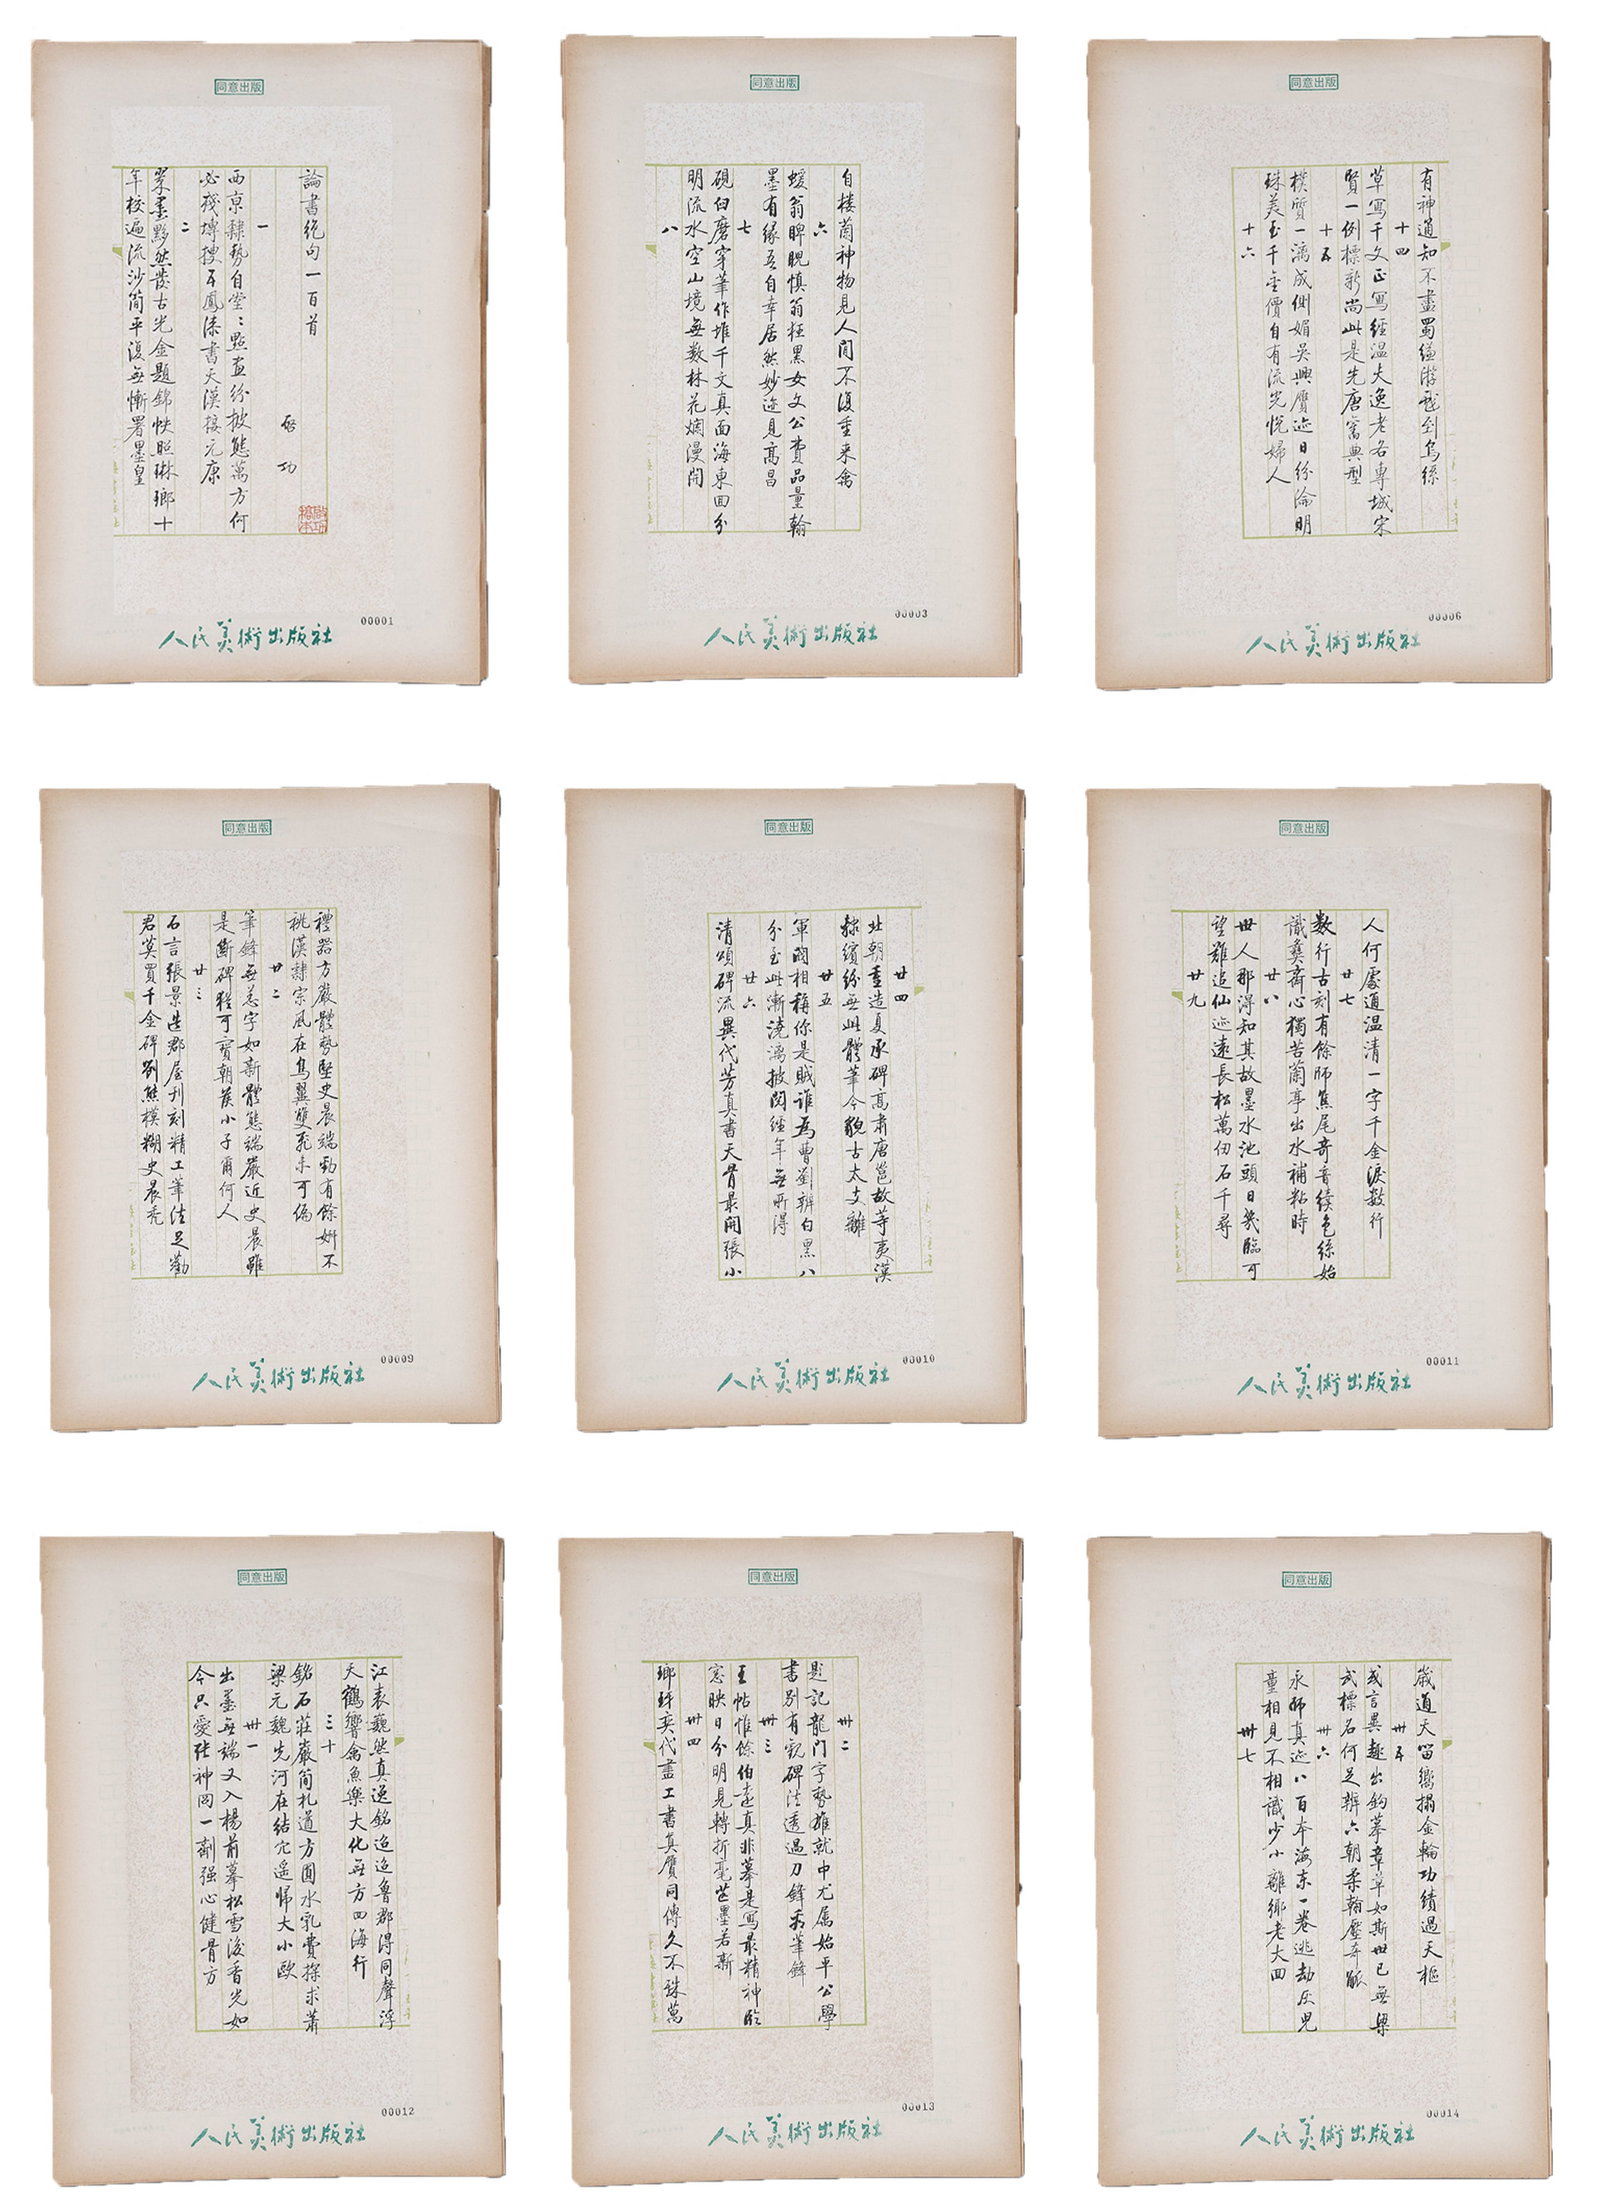 同意出版
論書絕句一百首
啓功
一
西京隸勢自堂ミ點畫紛披態萬方何
必殘塼搜五鳳漆書天漢接元康
二
翠墨黟然發古光金題錦帙照琳瑯十
年校遍流沙簡平復無慚署墨皇
00001
人民美術出版社
同意出版
自樓蘭神物見人間不復重来禽
六
蝯翁睥睨慎翁狂黑女文公費品量翰
墨有緣吾自幸居然妙迹見高昌
七
硯臼磨穿筆作堆千文真面海東回分
明流水空山境無數林花爛漫開
八
00003
人民美術出版社
同意出版
有神通知不盡蜀縑游戲到烏絲
十四
草寫千文正寫經溫夫逸老各專城宋
賢一例標新尚此是先唐舊典型
十五
樸質一漓成側媚吳興贗迹日紛淪明
珠美玉千金價自有流光悅婦人
十六
00006
人民美術出版社
同意出版
禮器方嚴體勢堅史晨端勁有餘妍不
祧漢隸宗風在鳥翼雙飛未可偏
廿二
筆鋒無恙字如新體態端嚴近史晨雖
是斷碑猶可寶朝侯小子爾何人
廿三
石言張景造郡屋刊刻精工筆法足勸
君莫買千金碑劉熊模糊史晨禿
00009
人民美術出版社
同意出版
廿四
北朝重造夏承碑高肅唐邕故等夷漢
隸繽紛無此體筆今貌古太支離
廿五
軍閥相稱你是賊誰為曹劉辨白黑八
分至此漸澆漓披閱經年無所得
廿六
清頌碑流異代芳真書天骨最開張小
00010
人民美術出版社
同意出版
人何處通溫清一字千金淚數行
廿七
數行古刻有餘師焦尾奇音續色絲始
識彝齋心獨苦蘭亭出水補粘時
廿八
世人那得知其故墨水池頭日幾臨可
望難追仙迹遠長松萬仞石千尋
廿九
00011
人民美術出版社
同意出版
江表巍然真逸銘迢迢魯郡得同聲浮
天鶴響禽魚樂大化無方四海行
三十
銘石莊嚴簡札遒方圓水乳費探求蕭
梁元魏先河在結穴遙歸大小歐
卅一
出墨無端又入楊前摹松雪後香光如
今只愛張神冏一劑强心健骨方
00012
人民美術出版社
同意出版
卅二
題記龍门字勢雄就中尤屬始平公學
書別有觀碑法透過刀鋒看筆鋒
卅三
王帖惟餘伯遠真非摹是寫最精神臨
窓映日分明見轉折毫芒墨若新
卅四
瑯玡奕代盡工書真贗同傳久不殊萬
00013
人民美術出版社
同意出版
歲通天留嚮搨金輪功績過天樞
卅五
或言異趣出鈎摹章草如斯世已無梁
武標名何足辨六朝柔翰壓奇觚
卅六
永師真迹八百本海東一卷逃劫灰兒
童相見不相識少小離鄉老大回
卅七
00014
人民美術出版社